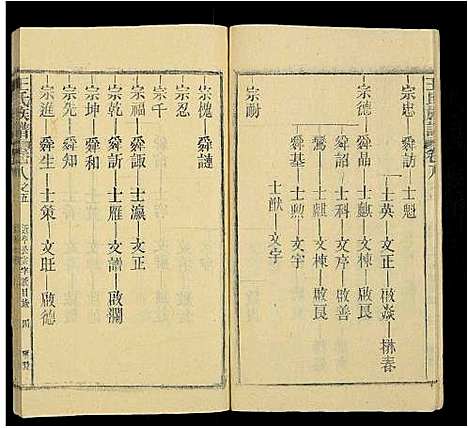 王氏族譜 卷八
宗忠 舜訪 士魁
士英 文正 啟焱 楙春
宗德 舜品 士 文棟 啟良
舜詔 士科 文序 啟善
士麒 文棟 啟良
舜基 士勲 文宇
士猷 文宇
宗勛
宗槐 舜譓
宗忍
宗千
宗福 舜諏 士瀛 文正
宗乾 舜訢 士雁 文譜 啟瀾
宗坤 舜和
宗先 舜知
宗進 舜生 士策 文旺 啟德
王氏族譜 卷八之五